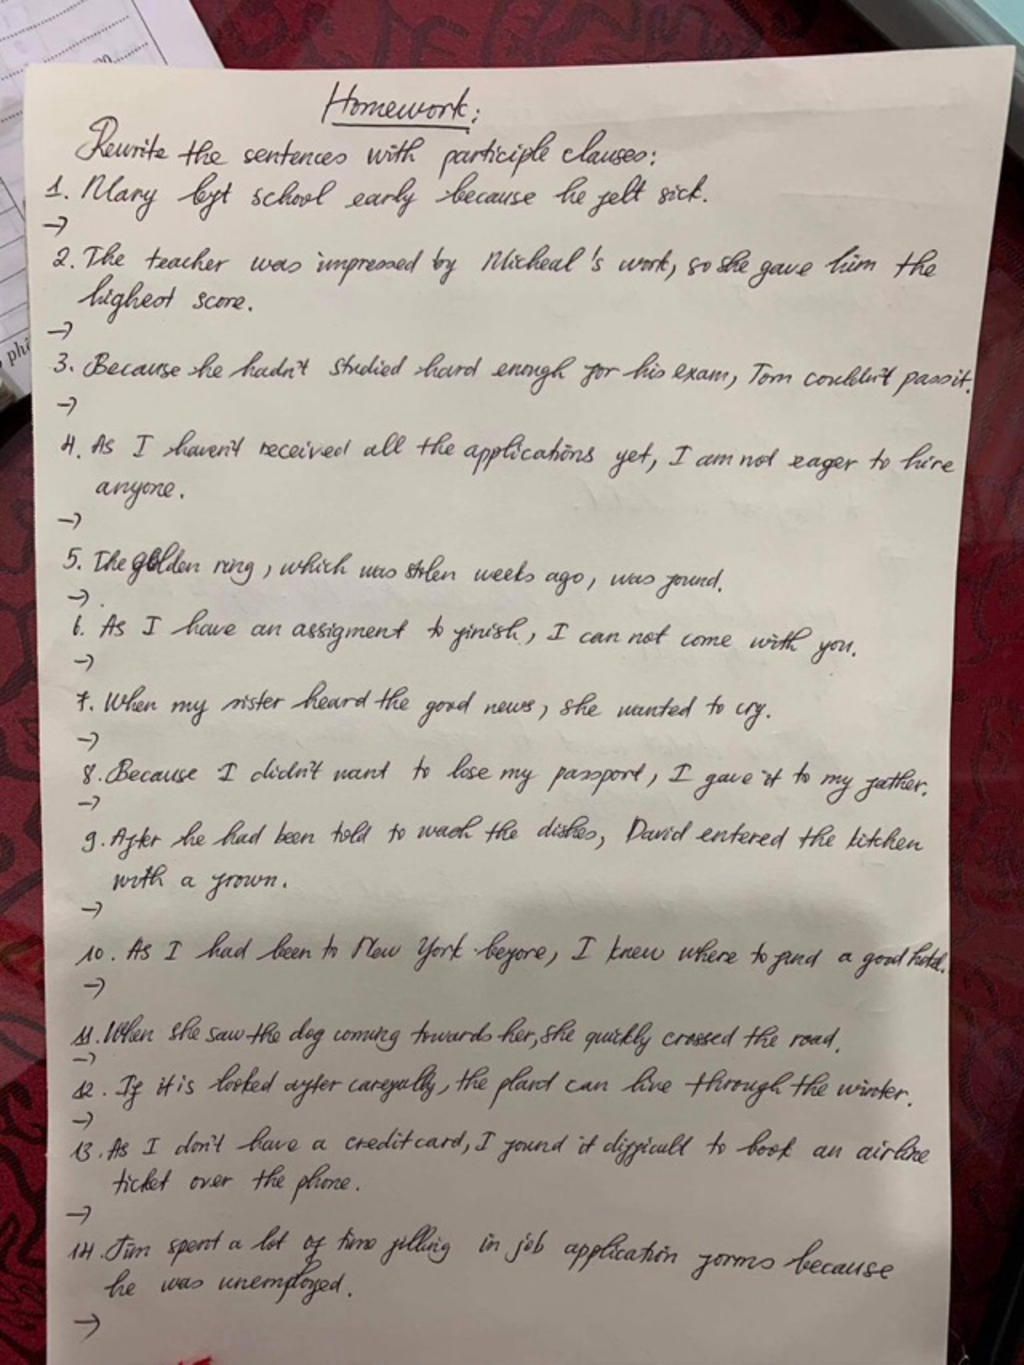 Homework:
Rewrite the sentences with participle clauses:
1. Mary left school early because he felt sick.
→
2. The teacher was impressed by Micheal's work, so she gave him the
highest score.
→
3. Because he hadn't studied hard enough for his exam, Tom couldn't pass it.
→
4. As I haven't received all the applications yet, I am not eager to hire
anyone.
→
5. The golden ring, which was stolen weeks ago, was found.
→.
6. As I have an assigment to finish, I can not come with you.
→
7. When my sister heard the good news, she wanted to cry.
→
8. Because I didn't want to lose my passport, I gave it to my father.
→
9. After he had been told to wash the dishes, David entered the kitchen
with a frown.
→
10. As I had been to New York before, I knew where to find a good hotel.
→
11. When she saw the dog coming towards her, she quickly crossed the road.
→
12. If it is looked after carefully, the plant can live through the winter.
→
13. As I don't have a credit card, I found it difficult to book an airline
ticket over the phone.
→
14. Jim spent a lot of time filling in job application forms because
he was unemployed.
→